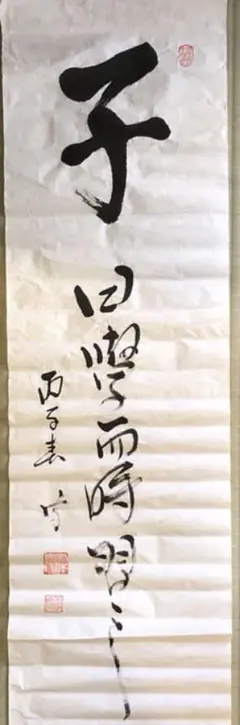 子
曰學而時習之
丙子春